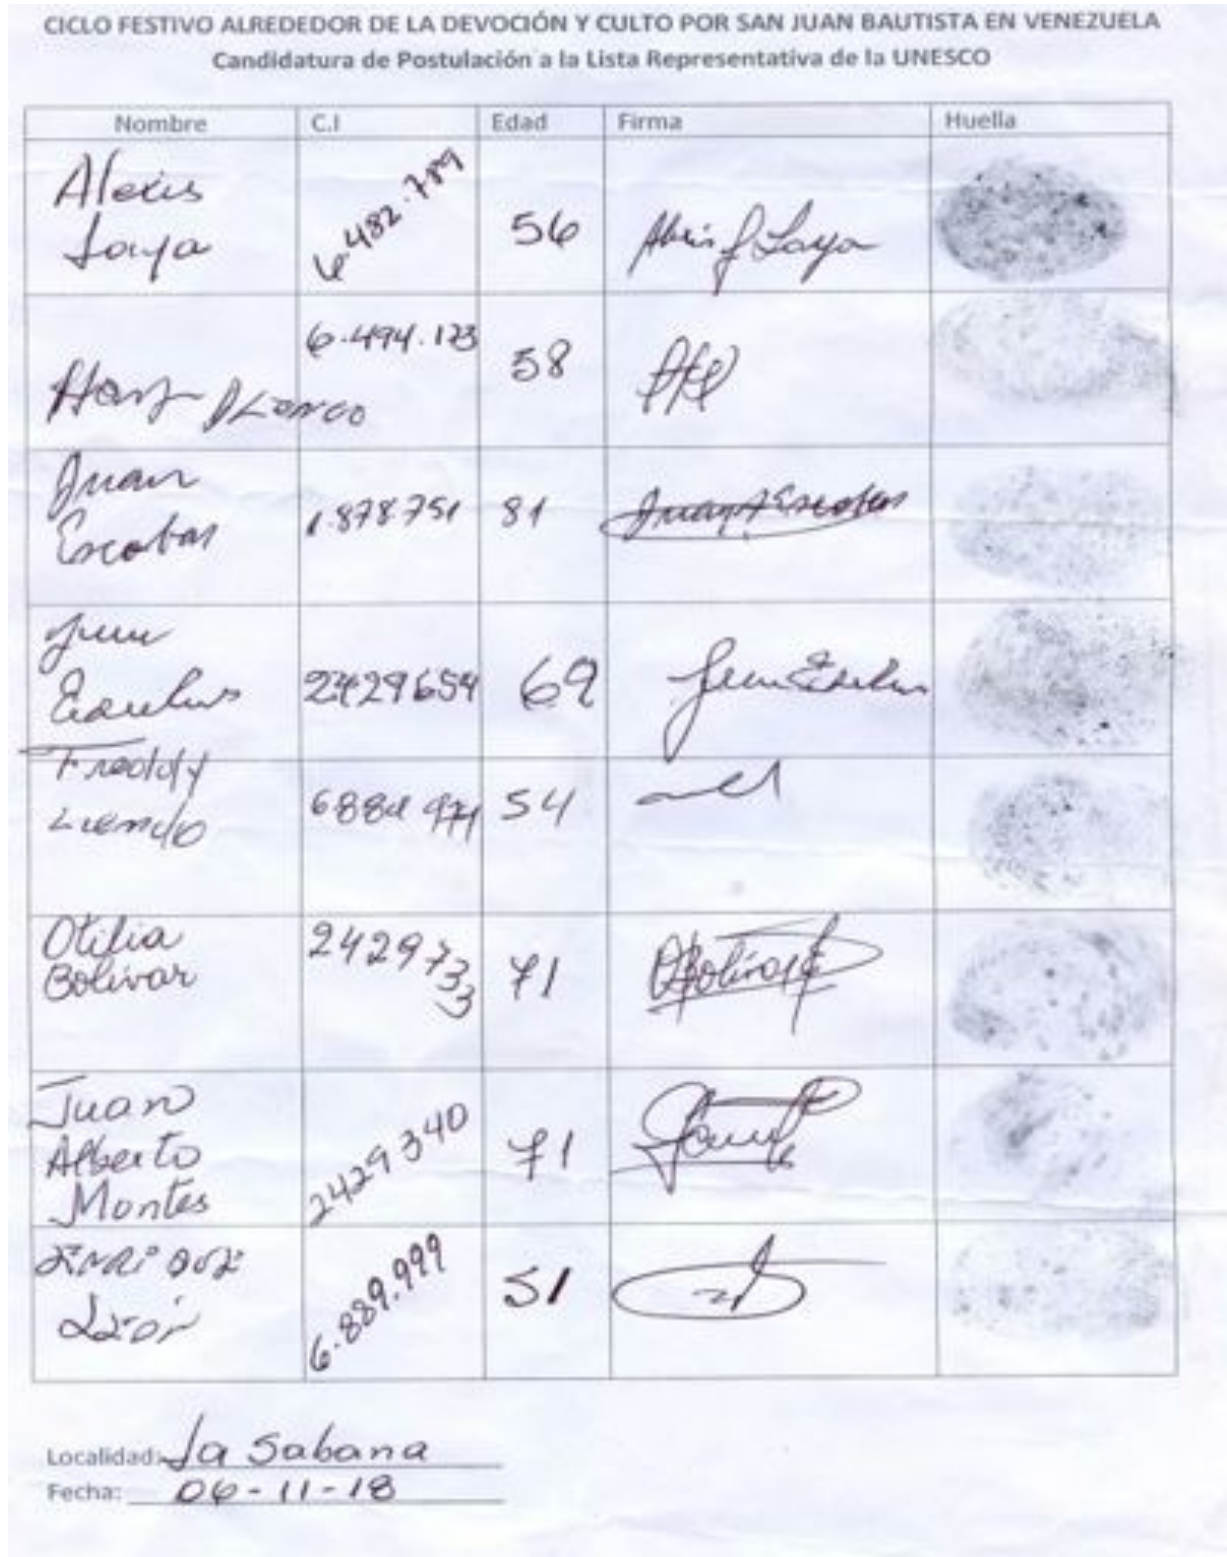 CICLO FESTIVO ALREDEDOR DE LA DEVOCIÓN Y CULTO POR SAN JUAN BAUTISTA EN VENEZUELA
Candidatura de Postulación a la Lista Representativa de la UNESCO
Nombre C.I Edad Firma Huella
Alexis
Laya
6.482.789 56 Alexis J Laya
6.494.123 58
Blanco
Juan
Escobar
1.878751 81 Juan Escobar
2429654 69
Freddy
Liendo
54
Otilia
Bolivar
2429733 71 OBolivar
Juan
Alberto
Montes
2429340 71
Enrique
León
6.889.999 51
Localidad: La Sabana
Fecha: 06-11-18